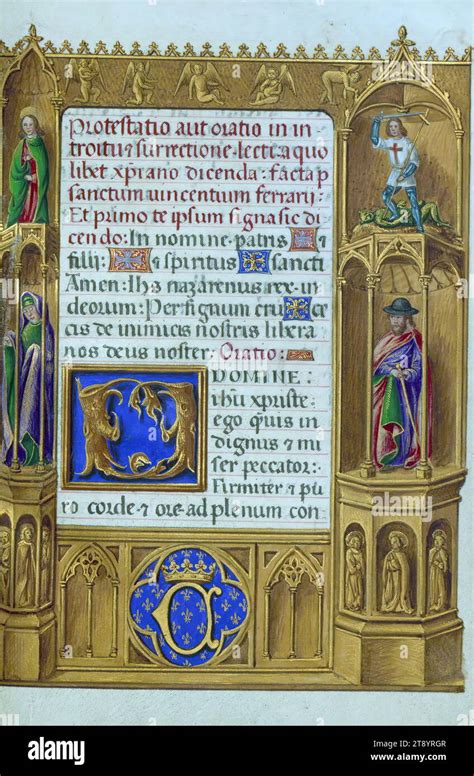 Protestatio aut oratio in in
troitu z surrectione · lecti: a quo
libet xp̄iano dicenda: facta p
sanctum vincentium ferrarij
Et primo te ipsum signa sic di
cendo: In nomine patris
filij: z spiritus sancti
Amen: Ihs nazarenus rex iu
deorum: Per signum cru
cis de inimicis nostris libera
nos deus noster: Oratio:
DOMINE:
ihu xpriste
ego quis in
dignus z mi
ser peccator:
Firmiter z pu
ro corde z ore ad plenum con
C
alamy
Image ID: 2T8YRGR
www.alamy.com